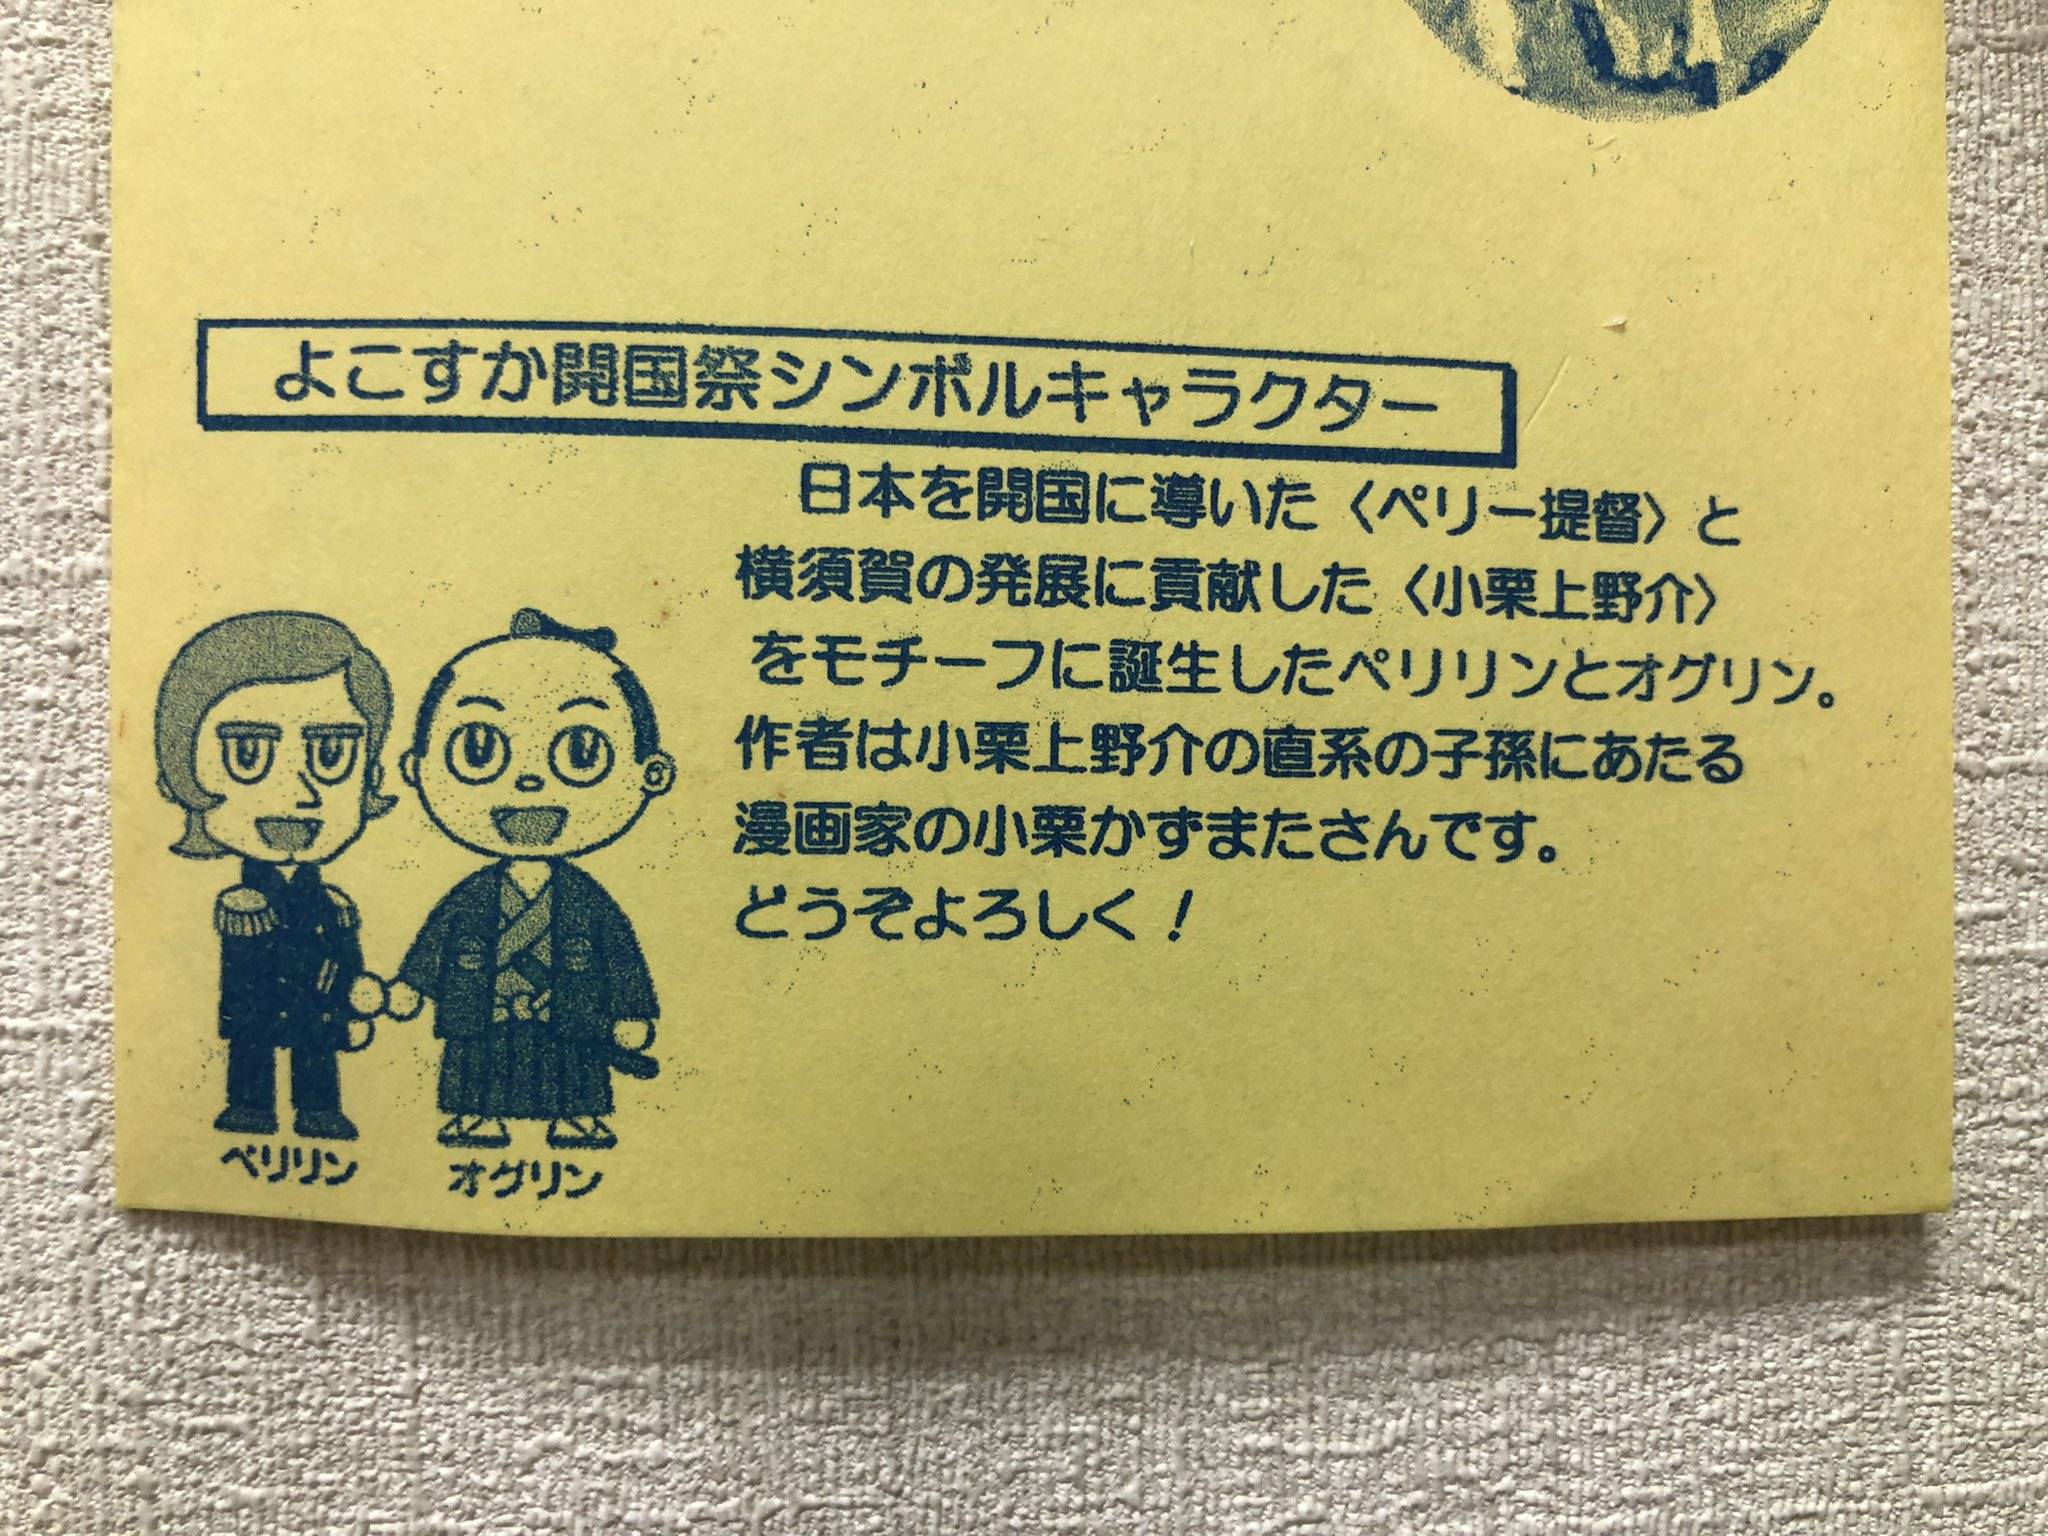 よこすか開国祭シンボルキャラクター
日本を開国に導いた〈ペリー提督〉と
横須賀の発展に貢献した〈小栗上野介〉
をモチーフに誕生したペリリンとオグリン。
作者は小栗上野介の直系の子孫にあたる
漫画家の小栗かずまたさんです。
どうぞよろしく！
ペリリン
オグリン